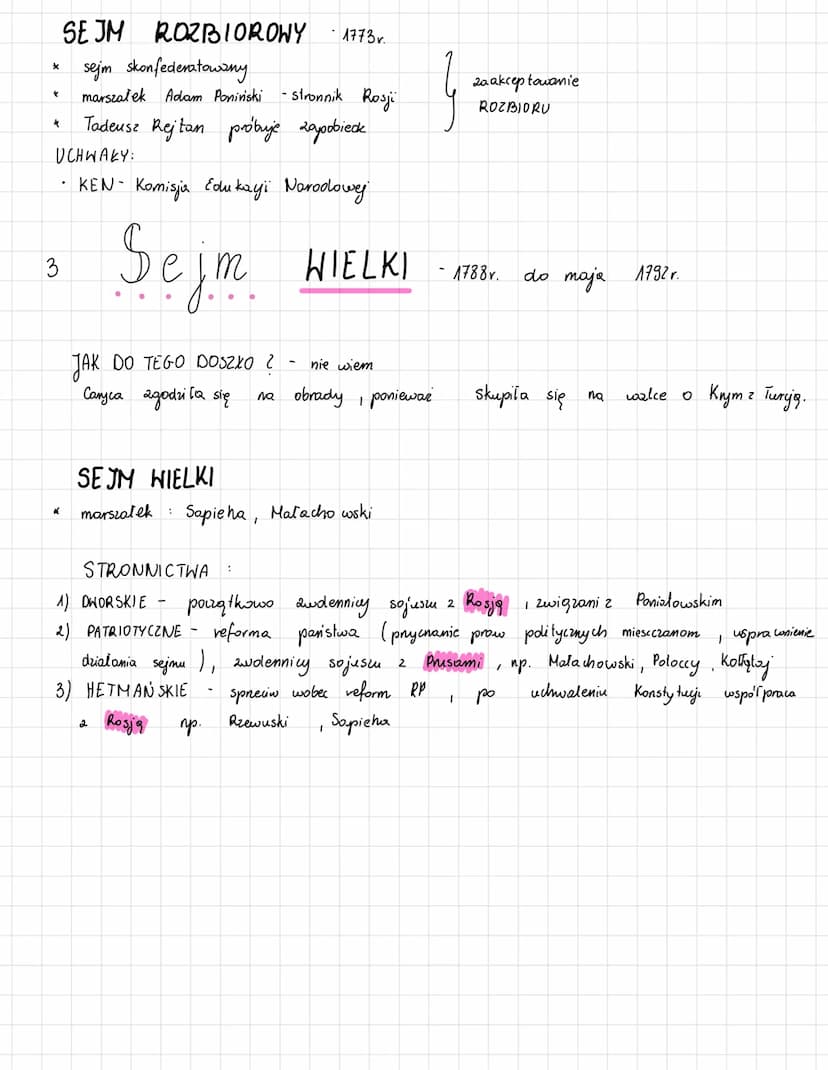 SEJM ROZBIOROWY - 1773r.
* sejm skonfederatowany
* marszałek Adam Poniński - stronnik Rosji
* Tadeusz Rejtan próbuje zapobiedz
} zaakceptowanie
ROZBIORU
UCHWAŁY:
· KEN - Komisja Edukacji Narodowej
3 Sejm WIELKI - 1788r. do maja 1792r.
JAK DO TEGO DOSZŁO ? - nie wiem
Caryca zgodziła się na obrady , ponieważ skupiła się na walce o Krym z Turcją.
SEJM WIELKI
* marszałek : Sapieha , Małachowski
STRONNICTWA :
1) DWORSKIE - początkowo zwolennicy sojuszu z Rosją , związani z Poniatowskim
2) PATRIOTYCZNE - reforma państwa ( przyznanie praw politycznych mieszczanom , usprawnienie
działania sejmu ), zwolennicy sojuszu z Prusami , np. Małachowski, Potoccy , Kołłątaj
3) HETMAŃSKIE - sprzeciw wobec reform RP , po uchwaleniu Konstytucji współpraca
z Rosją np. Rzewuski , Sapieha